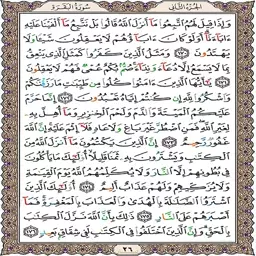 سُورَةُ البَقَرَةِ الجُزءُ الثَّانِي
وَإِذَا قِيلَ لَهُمُ اتَّبِعُوا مَا أَنزَلَ اللَّهُ قَالُوا بَلْ نَتَّبِعُ مَا أَلْفَيْنَا عَلَيْهِ
ءَابَاءَنَا أَوَلَوْ كَانَ ءَابَاؤُهُمْ لَا يَعْقِلُونَ شَيْئًا وَلَا
يَهْتَدُونَ ١٧٠ وَمَثَلُ الَّذِينَ كَفَرُوا كَمَثَلِ الَّذِي يَنْعِقُ
بِمَا لَا يَسْمَعُ إِلَّا دُعَاءً وَنِدَاءً صُمٌّ بُكْمٌ عُمْيٌ فَهُمْ لَا يَعْقِلُونَ
١٧١ يَا أَيُّهَا الَّذِينَ ءَامَنُوا كُلُوا مِن طَيِّبَاتِ مَا رَزَقْنَاكُمْ
وَاشْكُرُوا لِلَّهِ إِن كُنتُمْ إِيَّاهُ تَعْبُدُونَ ١٧٢ إِنَّمَا حَرَّمَ
عَلَيْكُمُ الْمَيْتَةَ وَالدَّمَ وَلَحْمَ الْخِنزِيرِ وَمَا أُهِلَّ بِهِ
لِغَيْرِ اللَّهِ فَمَنِ اضْطُرَّ غَيْرَ بَاغٍ وَلَا عَادٍ فَلَا إِثْمَ عَلَيْهِ إِنَّ اللَّهَ
غَفُورٌ رَّحِيمٌ ١٧٣ إِنَّ الَّذِينَ يَكْتُمُونَ مَا أَنزَلَ اللَّهُ مِنَ
الْكِتَابِ وَيَشْتَرُونَ بِهِ ثَمَنًا قَلِيلًا أُولَٰئِكَ مَا يَأْكُلُونَ
فِي بُطُونِهِمْ إِلَّا النَّارَ وَلَا يُكَلِّمُهُمُ اللَّهُ يَوْمَ الْقِيَامَةِ
وَلَا يُزَكِّيهِمْ وَلَهُمْ عَذَابٌ أَلِيمٌ ١٧٤ أُولَٰئِكَ الَّذِينَ
اشْتَرَوُا الضَّلَالَةَ بِالْهُدَىٰ وَالْعَذَابَ بِالْمَغْفِرَةِ فَمَا
أَصْبَرَهُمْ عَلَى النَّارِ ١٧٥ ذَٰلِكَ بِأَنَّ اللَّهَ نَزَّلَ الْكِتَابَ
بِالْحَقِّ وَإِنَّ الَّذِينَ اخْتَلَفُوا فِي الْكِتَابِ لَفِي شِقَاقٍ بَعِيدٍ ١٧٦
٢٦